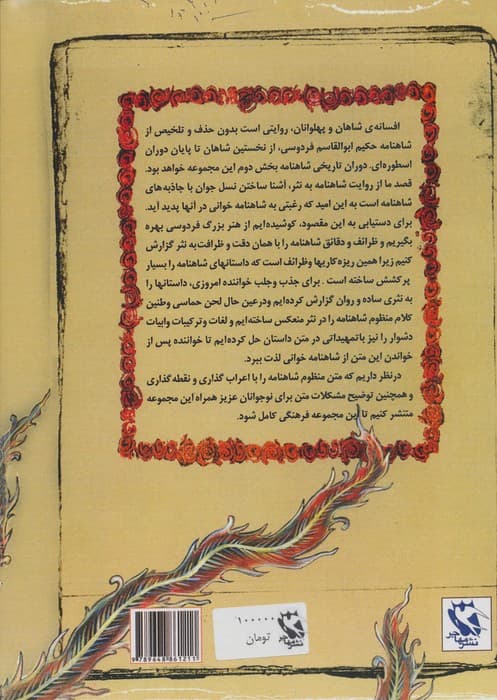 افسانه‌ی شاهان و پهلوانان، روایتی است بدون حذف و تلخیص از
شاهنامه حکیم ابوالقاسم فردوسی، از نخستین شاهان تا پایان دوران
اسطوره‌ای. دوران تاریخی شاهنامه بخش دوم این مجموعه خواهد بود.
قصد ما از روایت شاهنامه به نثر، آشنا ساختن نسل جوان با جاذبه‌های
شاهنامه است به این امید که رغبتی به شاهنامه خوانی در آنها پدید آید.
برای دستیابی به این مقصود، کوشیده‌ایم از هنر بزرگ فردوسی بهره
بگیریم و ظرائف و دقائق شاهنامه را با همان دقت و ظرافت به نثر گزارش
کنیم زیرا همین ریزه‌کاریها وظرائف است که داستانهای شاهنامه را بسیار
پرکشش ساخته است. برای جذب وجلب خواننده امروزی، داستانها را
به نثری ساده و روان گزارش کرده‌ایم ودرعین حال لحن حماسی وطنین
کلام منظوم شاهنامه را در نثر منعکس ساخته‌ایم و لغات وترکیبات وابیات
دشوار را نیز باتمهیداتی در متن داستان حل کرده‌ایم تا خواننده پس از
خواندن این متن از شاهنامه خوانی لذت ببرد.
درنظر داریم که متن منظوم شاهنامه را با اعراب گذاری و نقطه گذاری
و همچنین توضیح مشکلات متن برای نوجوانان عزیز همراه این مجموعه
منتشر کنیم تا این مجموعه فرهنگی کامل شود.
۱۰۰۰۰۰۰
تومان
9789648861211